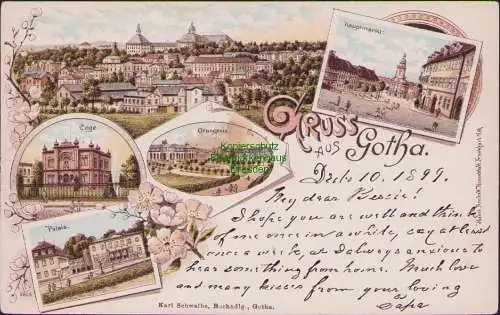 Hauptmarkt.
Loge
Orangerie
Palais
GRUSS
AUS
Gotha.
Kopierschutz
Dresden
Octo 10. 1899.
My dear Bessie!
I hope you are well and think
of me once in a while, say at least
once a week, as I always anxious to
hear something from home. Much love
and many kisses from your loving
Papa
Karl Schwalbe, Buchhdlg., Gotha.